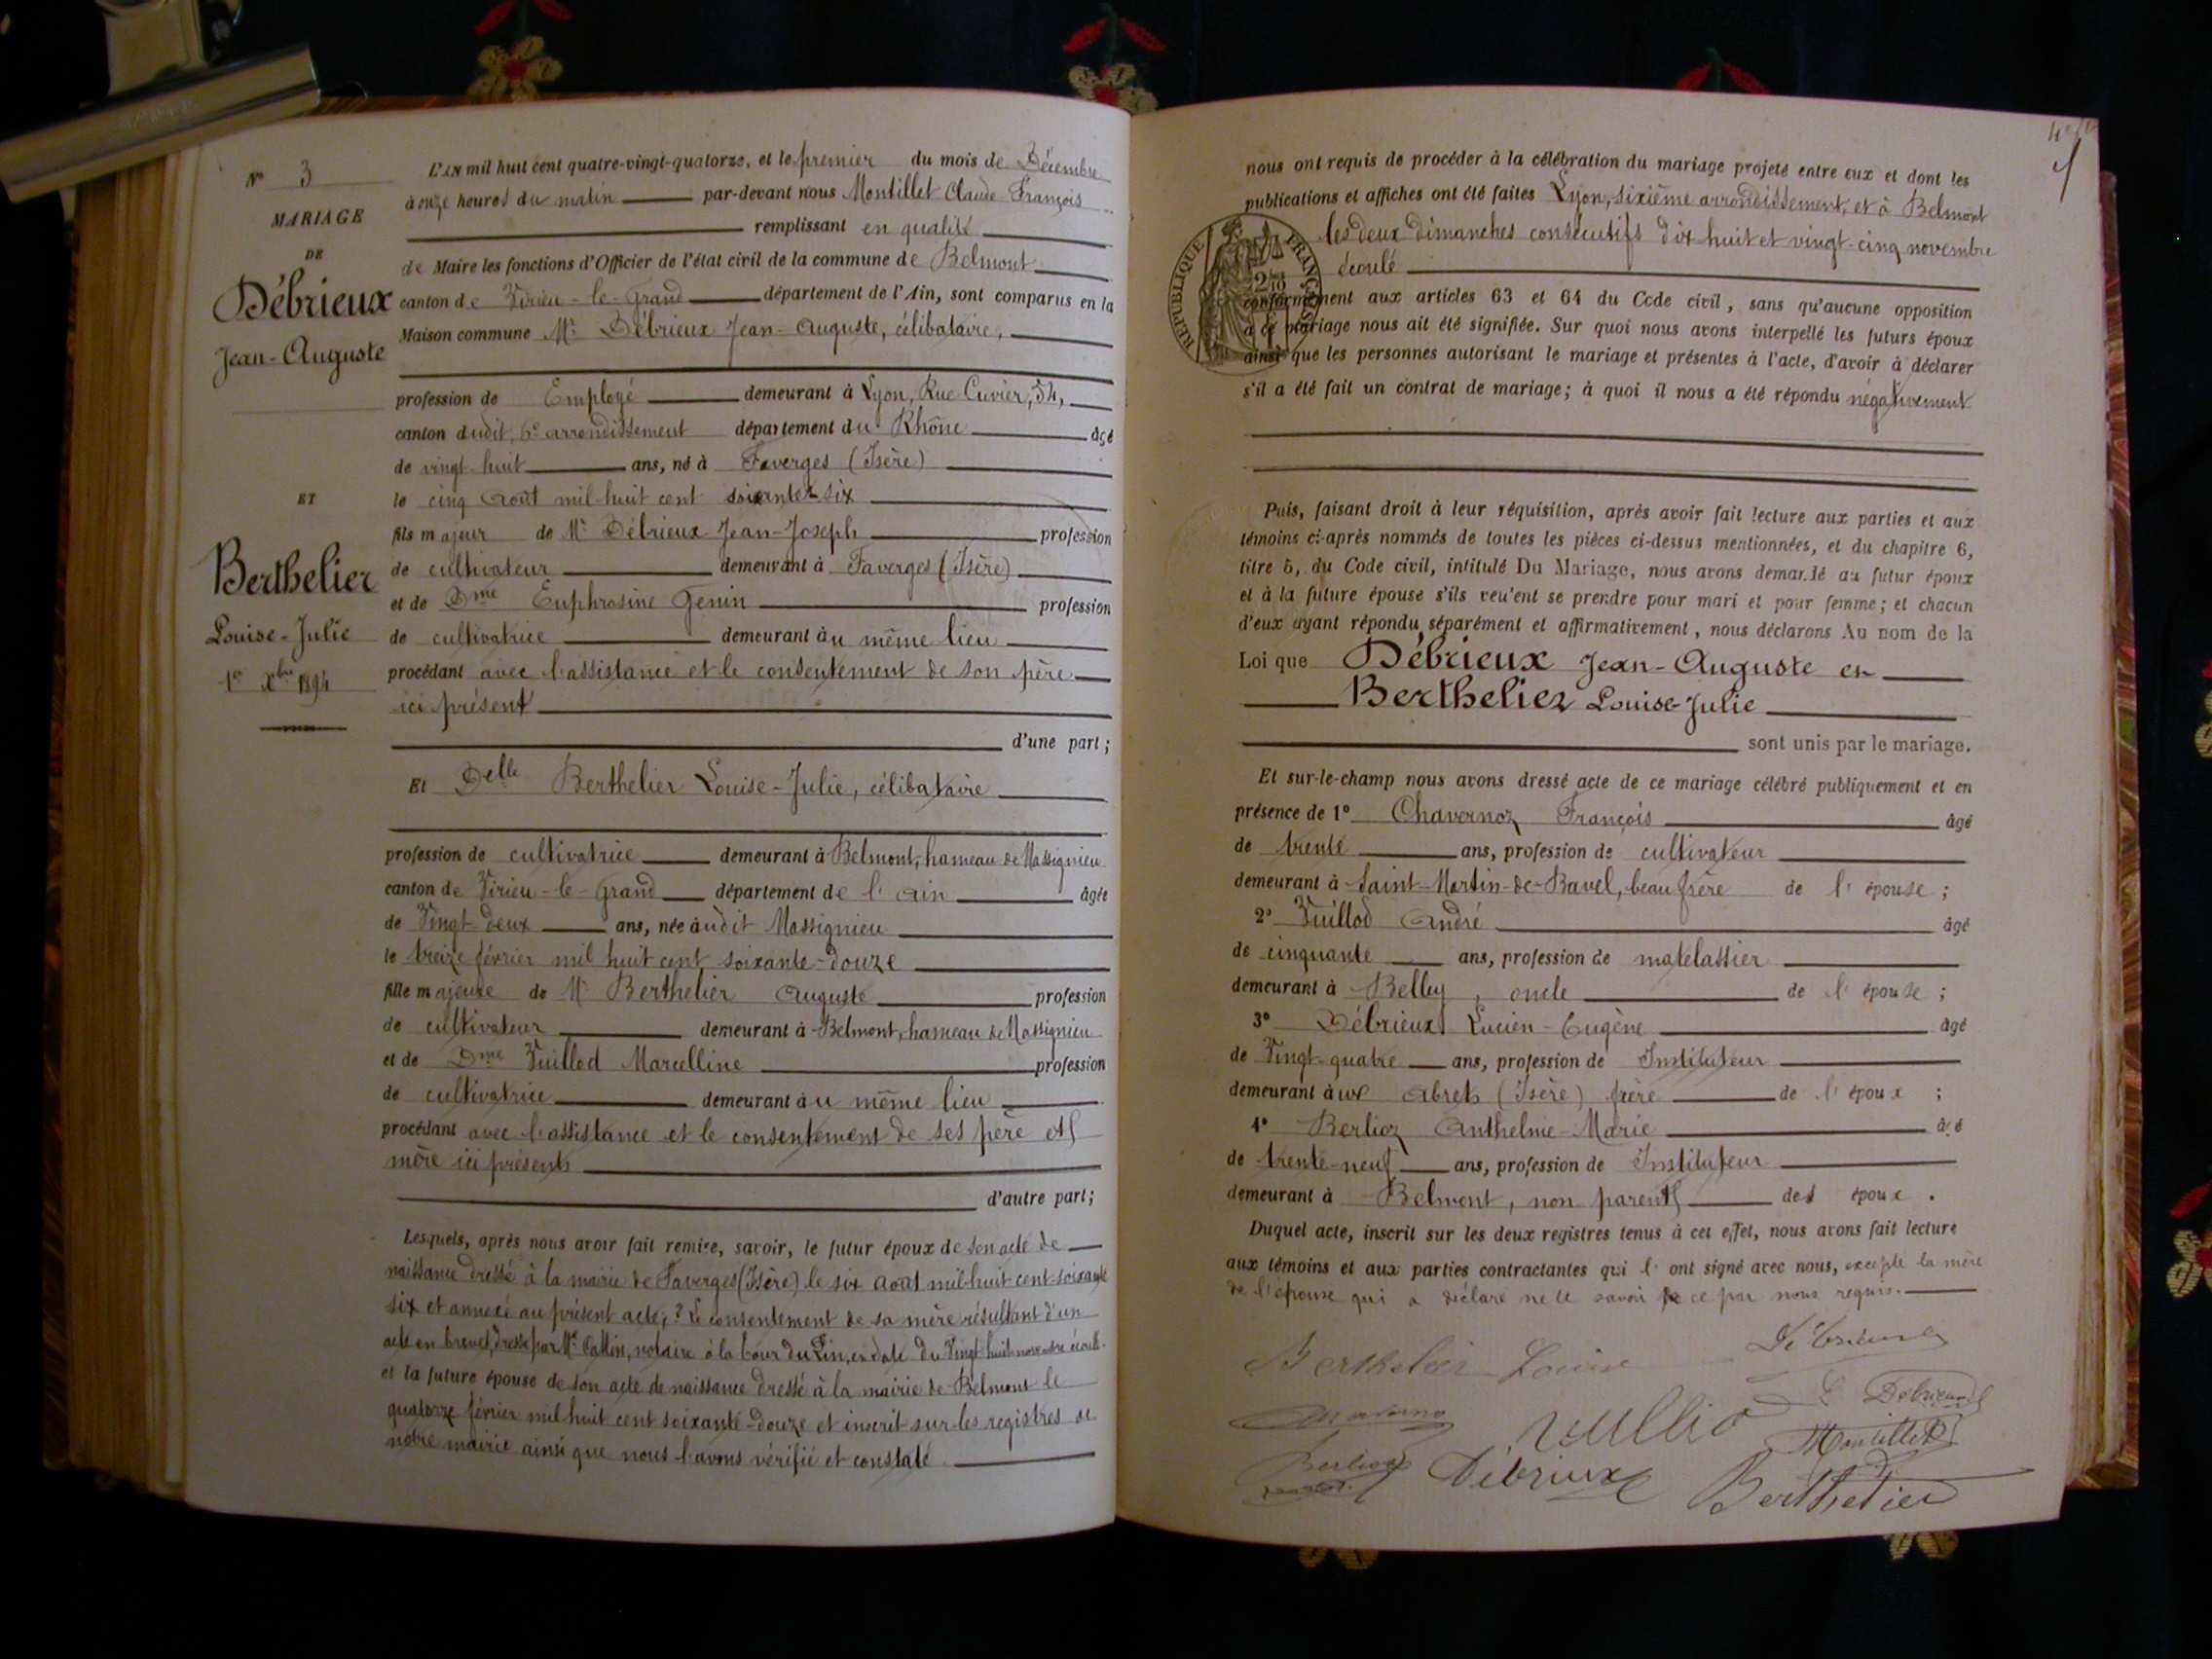 N° 3
MARIAGE
DE
Débrieux
Jean-Auguste
ET
Berthelier
Louise-Julie
1er Xbre 1894
L'AN mil huit cent quatre-vingt-quatorze, et le premier du mois de Décembre
à onze heures du matin par-devant nous Montillet Claude François
remplissant en qualité
de Maire les fonctions d'Officier de l'état civil de la commune de Belmont
canton de Virieu-le-Grand département de l'Ain, sont comparus en la
Maison commune Mr Débrieux Jean-Auguste, célibataire,
profession de Employé demeurant à Lyon, Rue Cuvier, 54,
canton dudit, 6e arrondissement département du Rhône âgé
de vingt-huit ans, né à Faverges (Isère)
le cinq Août mil-huit cent soixante-six
fils majeur de Mr Débrieux Jean-Joseph profession
de cultivateur demeurant à Faverges (Isère)
et de Dme Euphrosine Genin profession
de cultivatrice demeurant au même lieu
procédant avec l'assistance et le consentement de son père
ici présent
d'une part;
Et Delle Berthelier Louise-Julie, célibataire
profession de cultivatrice demeurant à Belmont, hameau de Massignieu
canton de Virieu-le-Grand département de l'Ain âgée
de Vingt-deux ans, née àudit Massignieu
le treize février mil huit cent soixante-douze
fille majeure de Mr Berthelier Auguste profession
de cultivateur demeurant à Belmont, hameau de Massignieu
et de Dme Vuillod Marcelline profession
de cultivatrice demeurant au même lieu
procédant avec l'assistance et le consentement de ses père et
mère ici présents
d'autre part;
Lesquels, après nous avoir fait remise, savoir, le futur époux de son acte de
naissance dressé à la mairie de Faverges (Isère) le six Août mil-huit cent soixante
six et annexé au présent acte; 2° Le consentement de sa mère résultant d'un
acte en brevet, dressé par Me Cattin, notaire à la Tour du Pin, en date du Vingt huit novembre écoulé
et la future épouse de son acte de naissance dressé à la mairie de Belmont le
quatorze février mil huit cent soixante-douze et inscrit sur les registres de
notre mairie ainsi que nous l'avons vérifié et constaté.
nous ont requis de procéder à la célébration du mariage projeté entre eux et dont les
publications et affiches ont été faites Lyon, sixième arrondissement, et à Belmont
les deux dimanches consécutifs dix huit et vingt-cinq novembre
écoulé
REPUBLIQUE FRANÇAISE
conformément aux articles 63 et 64 du Code civil, sans qu'aucune opposition
à ce mariage nous ait été signifiée. Sur quoi nous avons interpellé les futurs époux
ainsi que les personnes autorisant le mariage et présentes à l'acte, d'avoir à déclarer
s'il a été fait un contrat de mariage; à quoi il nous a été répondu négativement
Puis, faisant droit à leur réquisition, après avoir fait lecture aux parties et aux
témoins ci-après nommés de toutes les pièces ci-dessus mentionnées, et du chapitre 6,
titre 5, du Code civil, intitulé Du Mariage, nous avons demandé au futur époux
et à la future épouse s'ils veulent se prendre pour mari et pour femme; et chacun
d'eux ayant répondu séparément et affirmativement, nous déclarons Au nom de la
Loi que Débrieux Jean-Auguste et
Berthelier Louise-Julie
sont unis par le mariage.
Et sur-le-champ nous avons dressé acte de ce mariage célébré publiquement et en
présence de 1° Chavernoz François âgé
de trente ans, profession de cultivateur
demeurant à Saint-Martin-de-Bavel, beau frère de l'épouse;
2° Vuillod André âgé
de cinquante ans, profession de matelassier
demeurant à Belley, oncle de l'épouse;
3° Débrieux Lucien-Eugène âgé
de Vingt-quatre ans, profession de Instituteur
demeurant aux Abrets (Isère) frère de l'époux;
4° Berlioz Anthelme-Marie âgé
de trente-neuf ans, profession de Instituteur
demeurant à Belmont, non parent des époux.
Duquel acte, inscrit sur les deux registres tenus à cet effet, nous avons fait lecture
aux témoins et aux parties contractantes qui l'ont signé avec nous, excepté la mère
de l'épouse qui a déclaré ne le savoir de ce par nous requis.
Berthelier Louise
Débrieux
Vuillod
Montillet
Berlioz Débrieux Berthelier